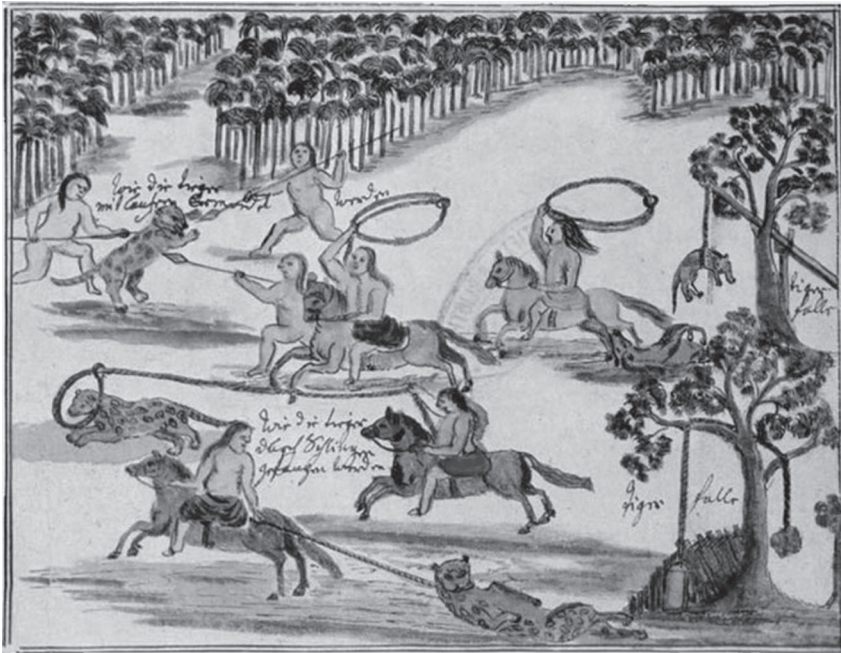 Wie die tieger
mit lantzen Ermordet werden
tiger
falle
Wie die tieger
durch Schlingen
gefangen werden
tiger falle